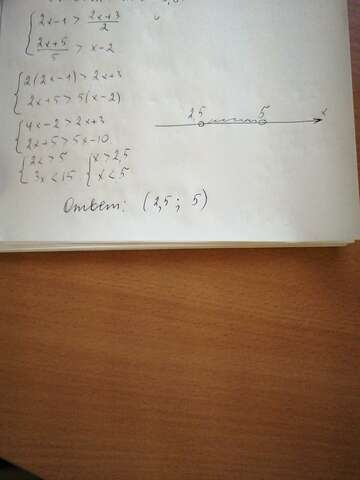 2x-1 > 2x+3/2
2x+5/5 > x-2
2(2x-1) > 2x+3
2x+5 > 5(x-2)
4x-2 > 2x+3
2x+5 > 5x-10
2x > 5 x > 2,5
3x < 15 x < 5
2,5 5 x
Ответ: (2,5; 5)